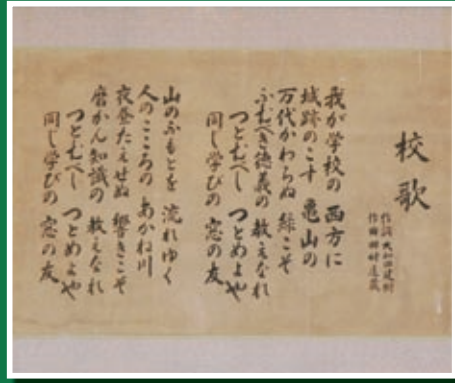 校歌
作詞 大和田建樹
作曲 田村虎蔵
我が学校の 西方に
城跡のこす 亀山の
万代かわらぬ 緑こそ
ふむべき徳義の 教えなれ
つとむべし つとめよや
同じ学びの 窓の友
山のふもとを 流れゆく
人のこころの あかね川
夜昼たえせぬ 響きこそ
磨かん知識の 教えなれ
つとむべし つとめよや
同じ学びの 窓の友